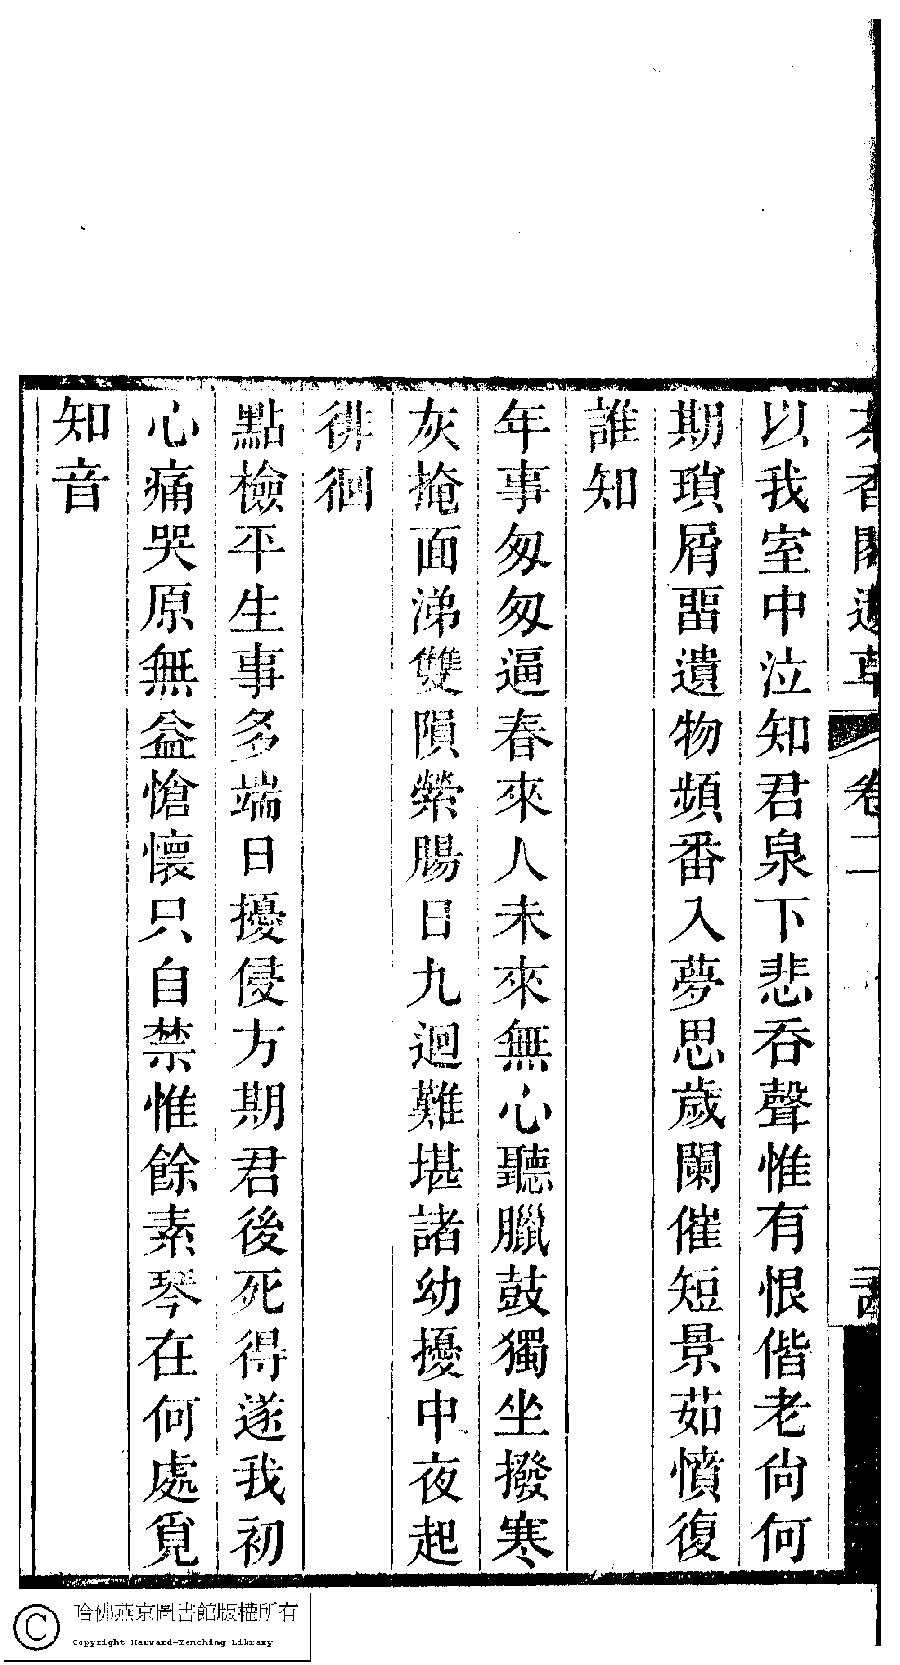 香閣遺草 卷二
以我室中泣知君泉下悲吞聲惟有恨偕老尙何
期瑣屑畱遺物頻番入夢思歲闌催短景茹憤復
誰知
年事匆匆逼春來人未來無心聽臘鼓獨坐撥寒
灰掩面涕雙隕縈腸日九迴難堪諸幼擾中夜起
徘徊
點檢平生事多端日擾侵方期君後死得遂我初
心痛哭原無益愴懷只自禁惟餘素琴在何處覓
知音
哈佛燕京圖書館版權所有
Copyright Harvard-Yenching Library